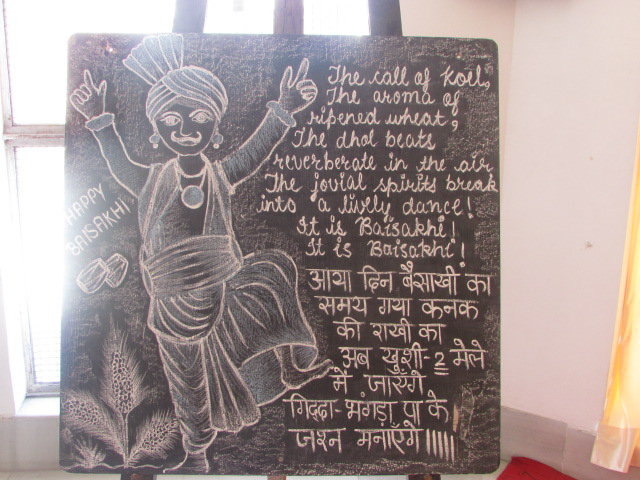 The call of Koel,
The aroma of
ripened wheat,
The dhol beats
reverberate in the air
The jovial spirits break
into a lively dance!
It is Baisakhi!
It is Baisakhi!
HAPPY
BAISAKHI
आया दिन बैसाखी का
समय गया कनक
की राखी का
अब खुशी-2 मेले
में जाएँगे
गिद्दा-भंगड़ा पा के
जश्न मनाएँगे |||||